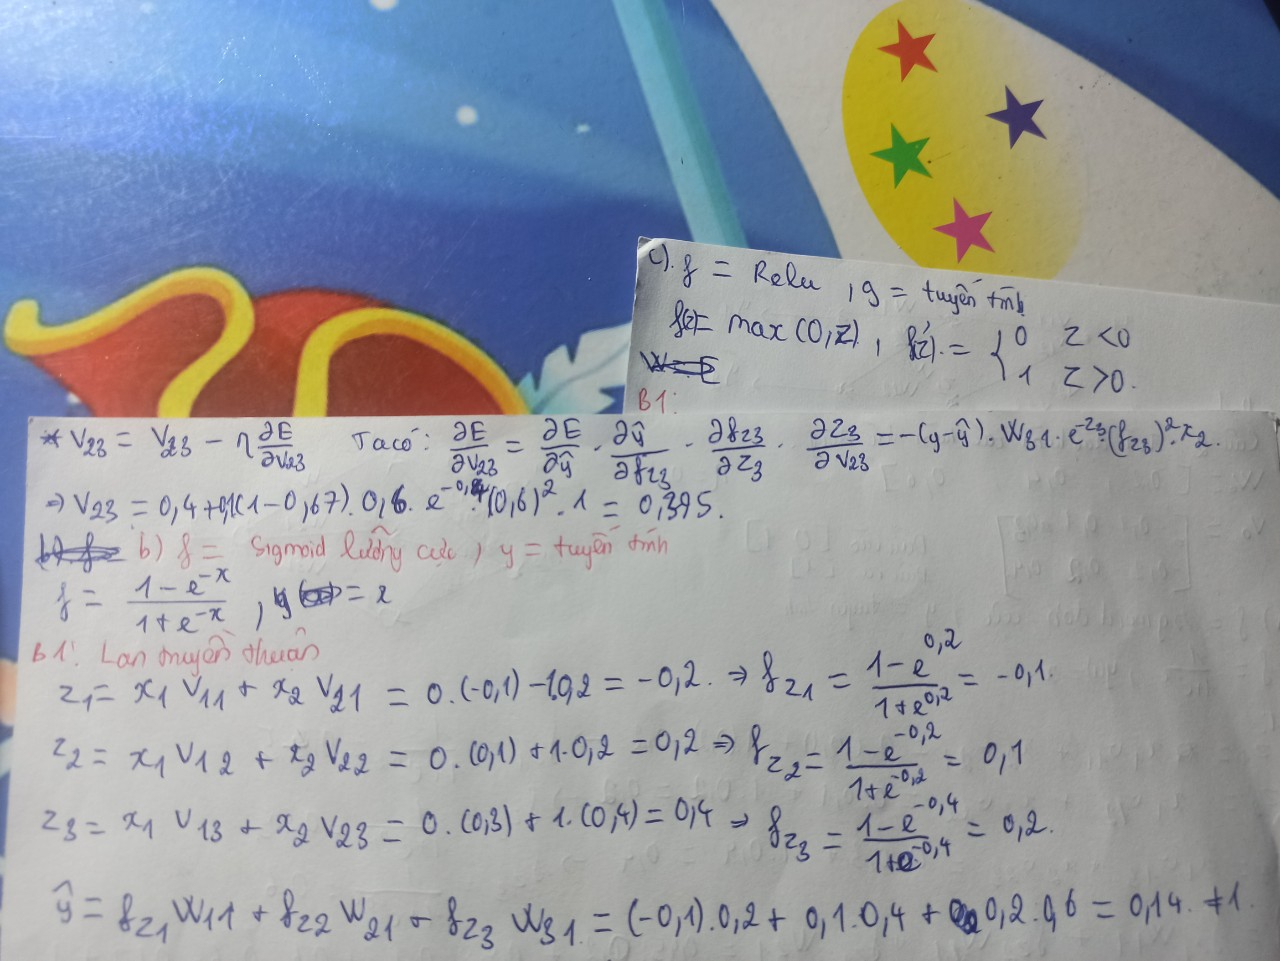 c). f = Relu, g = tuyến tính
f(z) = max(0,z), f'(z) = { 0 z<0
1 z>0.
B1:
* V23 = V23 - η ∂E/∂V23 Ta có: ∂E/∂V23 = ∂E/∂ŷ · ∂ŷ/∂fz3 · ∂fz3/∂z3 · ∂z3/∂V23 = -(y-ŷ). W31. e^-z3.(fz3)^2. x2.
⇒ V23 = 0,4+0,1(1-0,67). 0,6. e^-0,4.(0,6)^2. 1 = 0,395.
b) f = Sigmoid lưỡng cực, y = tuyến tính
f = (1-e^-x)/(1+e^-x), y = x
B1: Lan truyền thuận
z1 = x1 V11 + x2 V21 = 0.(-0,1) -1.0,2 = -0,2. ⇒ fz1 = (1-e^0,2)/(1+e^0,2) = -0,1.
z2 = x1 V12 + x2 V22 = 0.(0,1) +1.0,2 = 0,2 ⇒ fz2 = (1-e^-0,2)/(1+e^-0,2) = 0,1
z3 = x1 V13 + x2 V23 = 0.(0,3) + 1.(0,4) = 0,4 ⇒ fz3 = (1-e^-0,4)/(1+e^-0,4) = 0,2.
ŷ = fz1 W11 + fz2 W21 + fz3 W31 = (-0,1).0,2 + 0,1.0,4 + 0,2.0,6 = 0,14. ≠1.